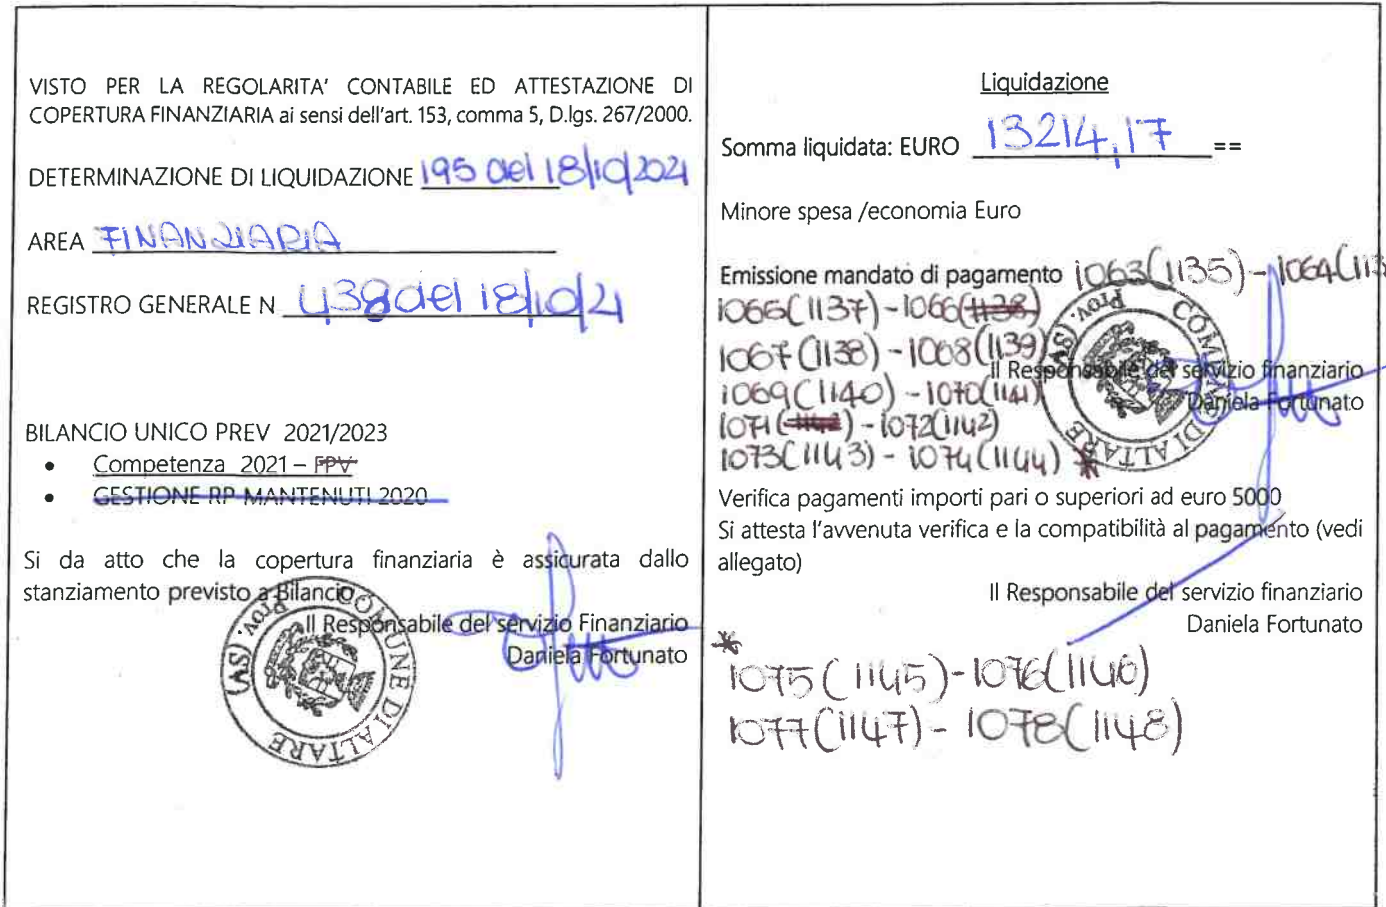 VISTO PER LA REGOLARITA' CONTABILE ED ATTESTAZIONE DI
COPERTURA FINANZIARIA ai sensi dell'art. 153, comma 5, D.lgs. 267/2000.
DETERMINAZIONE DI LIQUIDAZIONE 195 del 18/10/2021
AREA FINANZIARIA
REGISTRO GENERALE N 438 del 18/10/21
BILANCIO UNICO PREV 2021/2023
• Competenza 2021 – FPV
• GESTIONE RP MANTENUTI 2020
Si da atto che la copertura finanziaria è assicurata dallo
stanziamento previsto a Bilancio
Il Responsabile del servizio Finanziario
Daniela Fortunato
COMUNE DI ALTARE
Prov. (SV)
Liquidazione
Somma liquidata: EURO 13214,17 ==
Minore spesa /economia Euro
Emissione mandato di pagamento 1063(1135) - 1064(113
1065(1137) - 1066(1138)
1067(1138) - 1068(1139)
Il Responsabile del servizio finanziario
1069(1140) - 1070(1141)
Daniela Fortunato
1071() - 1072(1142)
1073(1143) - 1074(1144) *
COMUNE DI ALTARE
Prov. (SV)
Verifica pagamenti importi pari o superiori ad euro 5000
Si attesta l'avvenuta verifica e la compatibilità al pagamento (vedi
allegato)
Il Responsabile del servizio finanziario
Daniela Fortunato
*
1075(1145) - 1076(1146)
1077(1147) - 1078(1148)